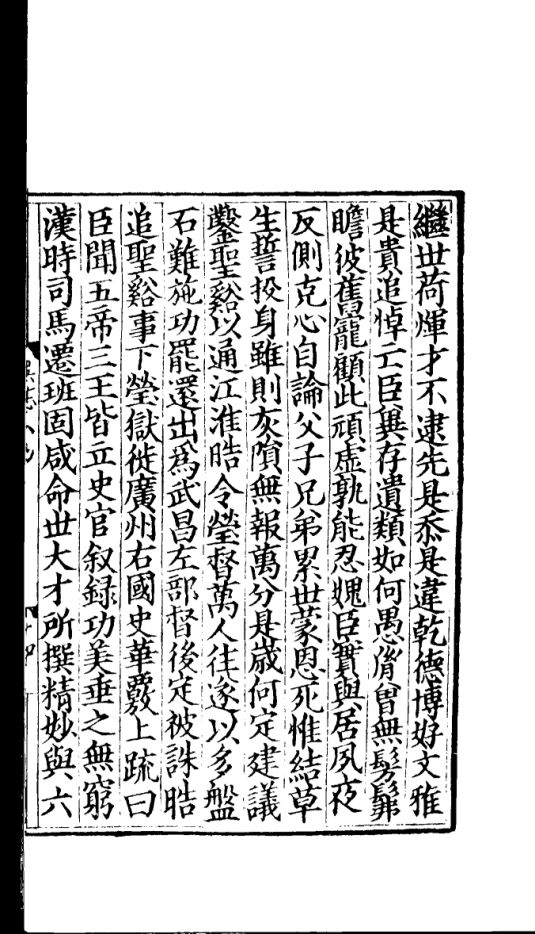 繼世荷煇才不逮先是忝是違乾德博好文雅
是貴追悼亡臣兾存遺類如何愚胤曾無髣髴
瞻彼舊寵顧此頑虛孰能忍媿臣實與居夙夜
反側克心自論父子兄弟累世蒙恩死惟結草
生誓投身雖則灰隕無報萬分是歲何定建議
鑿聖谿以通江淮晧令瑩督萬人往遂以多盤
石難施功罷還出爲武昌左部督後定被誅晧
追聖谿事下瑩獄徙廣州右國史華覈上疏曰
臣聞五帝三王皆立史官叙録功美垂之無窮
漢時司馬遷班固咸命世大才所撰精妙與六